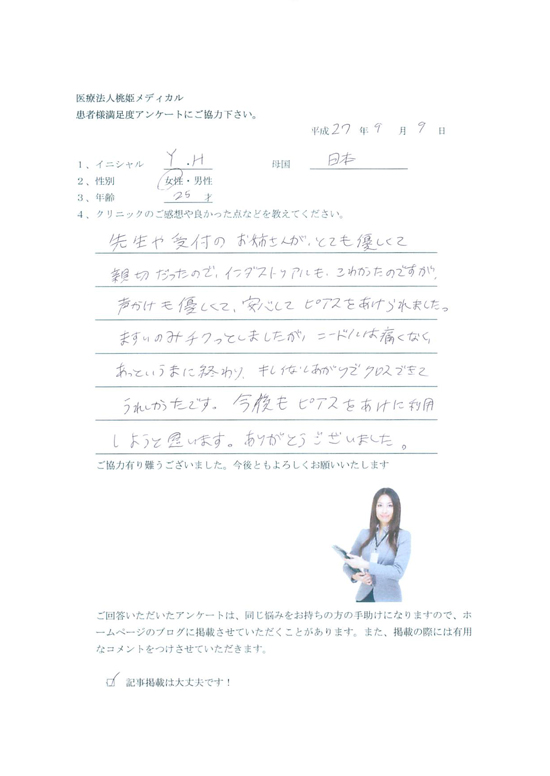 医療法人桃姫メディカル
患者様満足度アンケートにご協力下さい。
平成 27 年 9 月 9 日
1、イニシャル Y.H 母国 日本
2、性別 女性・男性
3、年齢 25 才
4、クリニックのご感想や良かった点などを教えてください。
先生や受付のお姉さんが、とても優しくて
親切だったので、インダストリアルも、こわかったのですが、
声かけも優しくて、安心してピアスをあけられました。
ますいのみチクっとしましたが、ニードルは痛くなく、
あっというまに終わり、キレイなしあがりでクロスできて
うれしかったです。今後もピアスをあけに利用
しようと思います。ありがとうございました。
ご協力有り難うございました。今後ともよろしくお願いいたします
ご回答いただいたアンケートは、同じ悩みをお持ちの方の手助けになりますので、ホ
ームページのブログに掲載させていただくことがあります。また、掲載の際には有用
なコメントをつけさせていただきます。
☑ 記事掲載は大丈夫です！